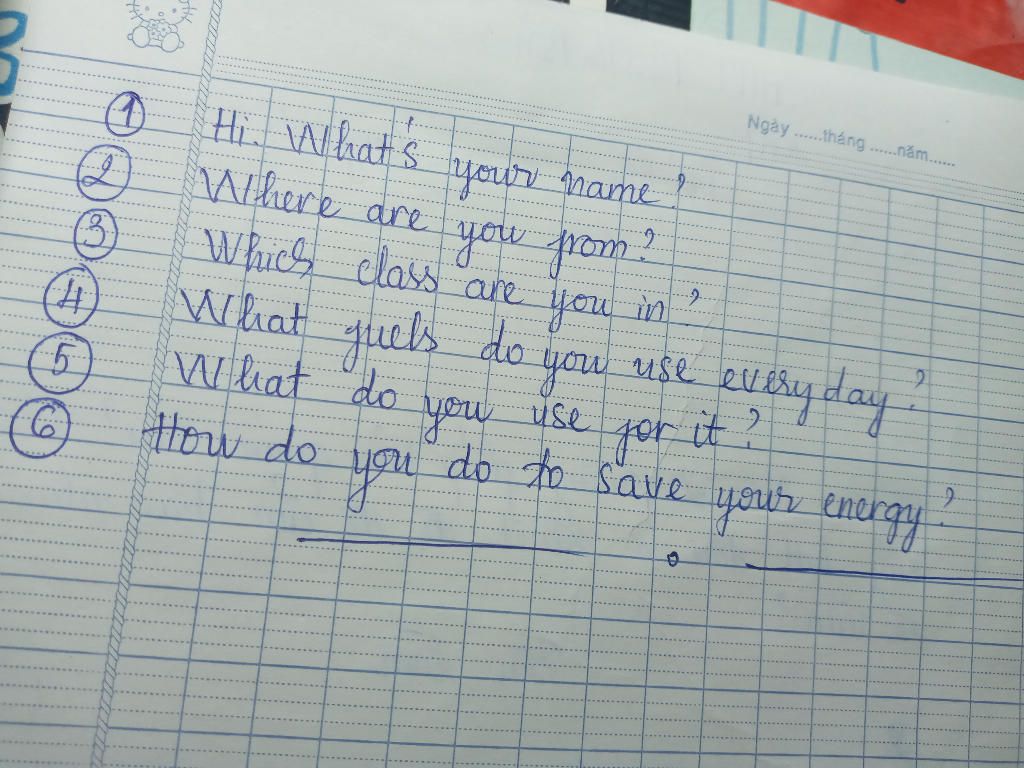 Ngày ......tháng ......năm......
1 Hi. What's your name?
2 Where are you from?
3 Which class are you in?
4 What fuels do you use every day?
5 What do you use for it?
6 How do you do to save your energy?